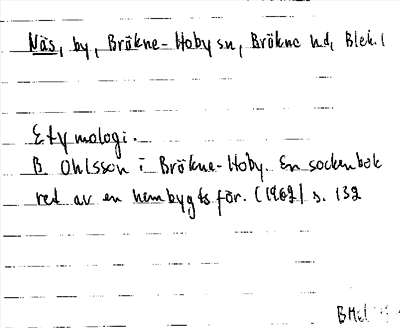 Näs, by, Bräkne-Hoby sn, Bräkne hd, Blek. l
Etymologi.
B. Ohlsson i Bräkne-Hoby. En sockenbok
red av en hembygdsför. (1962) s. 132